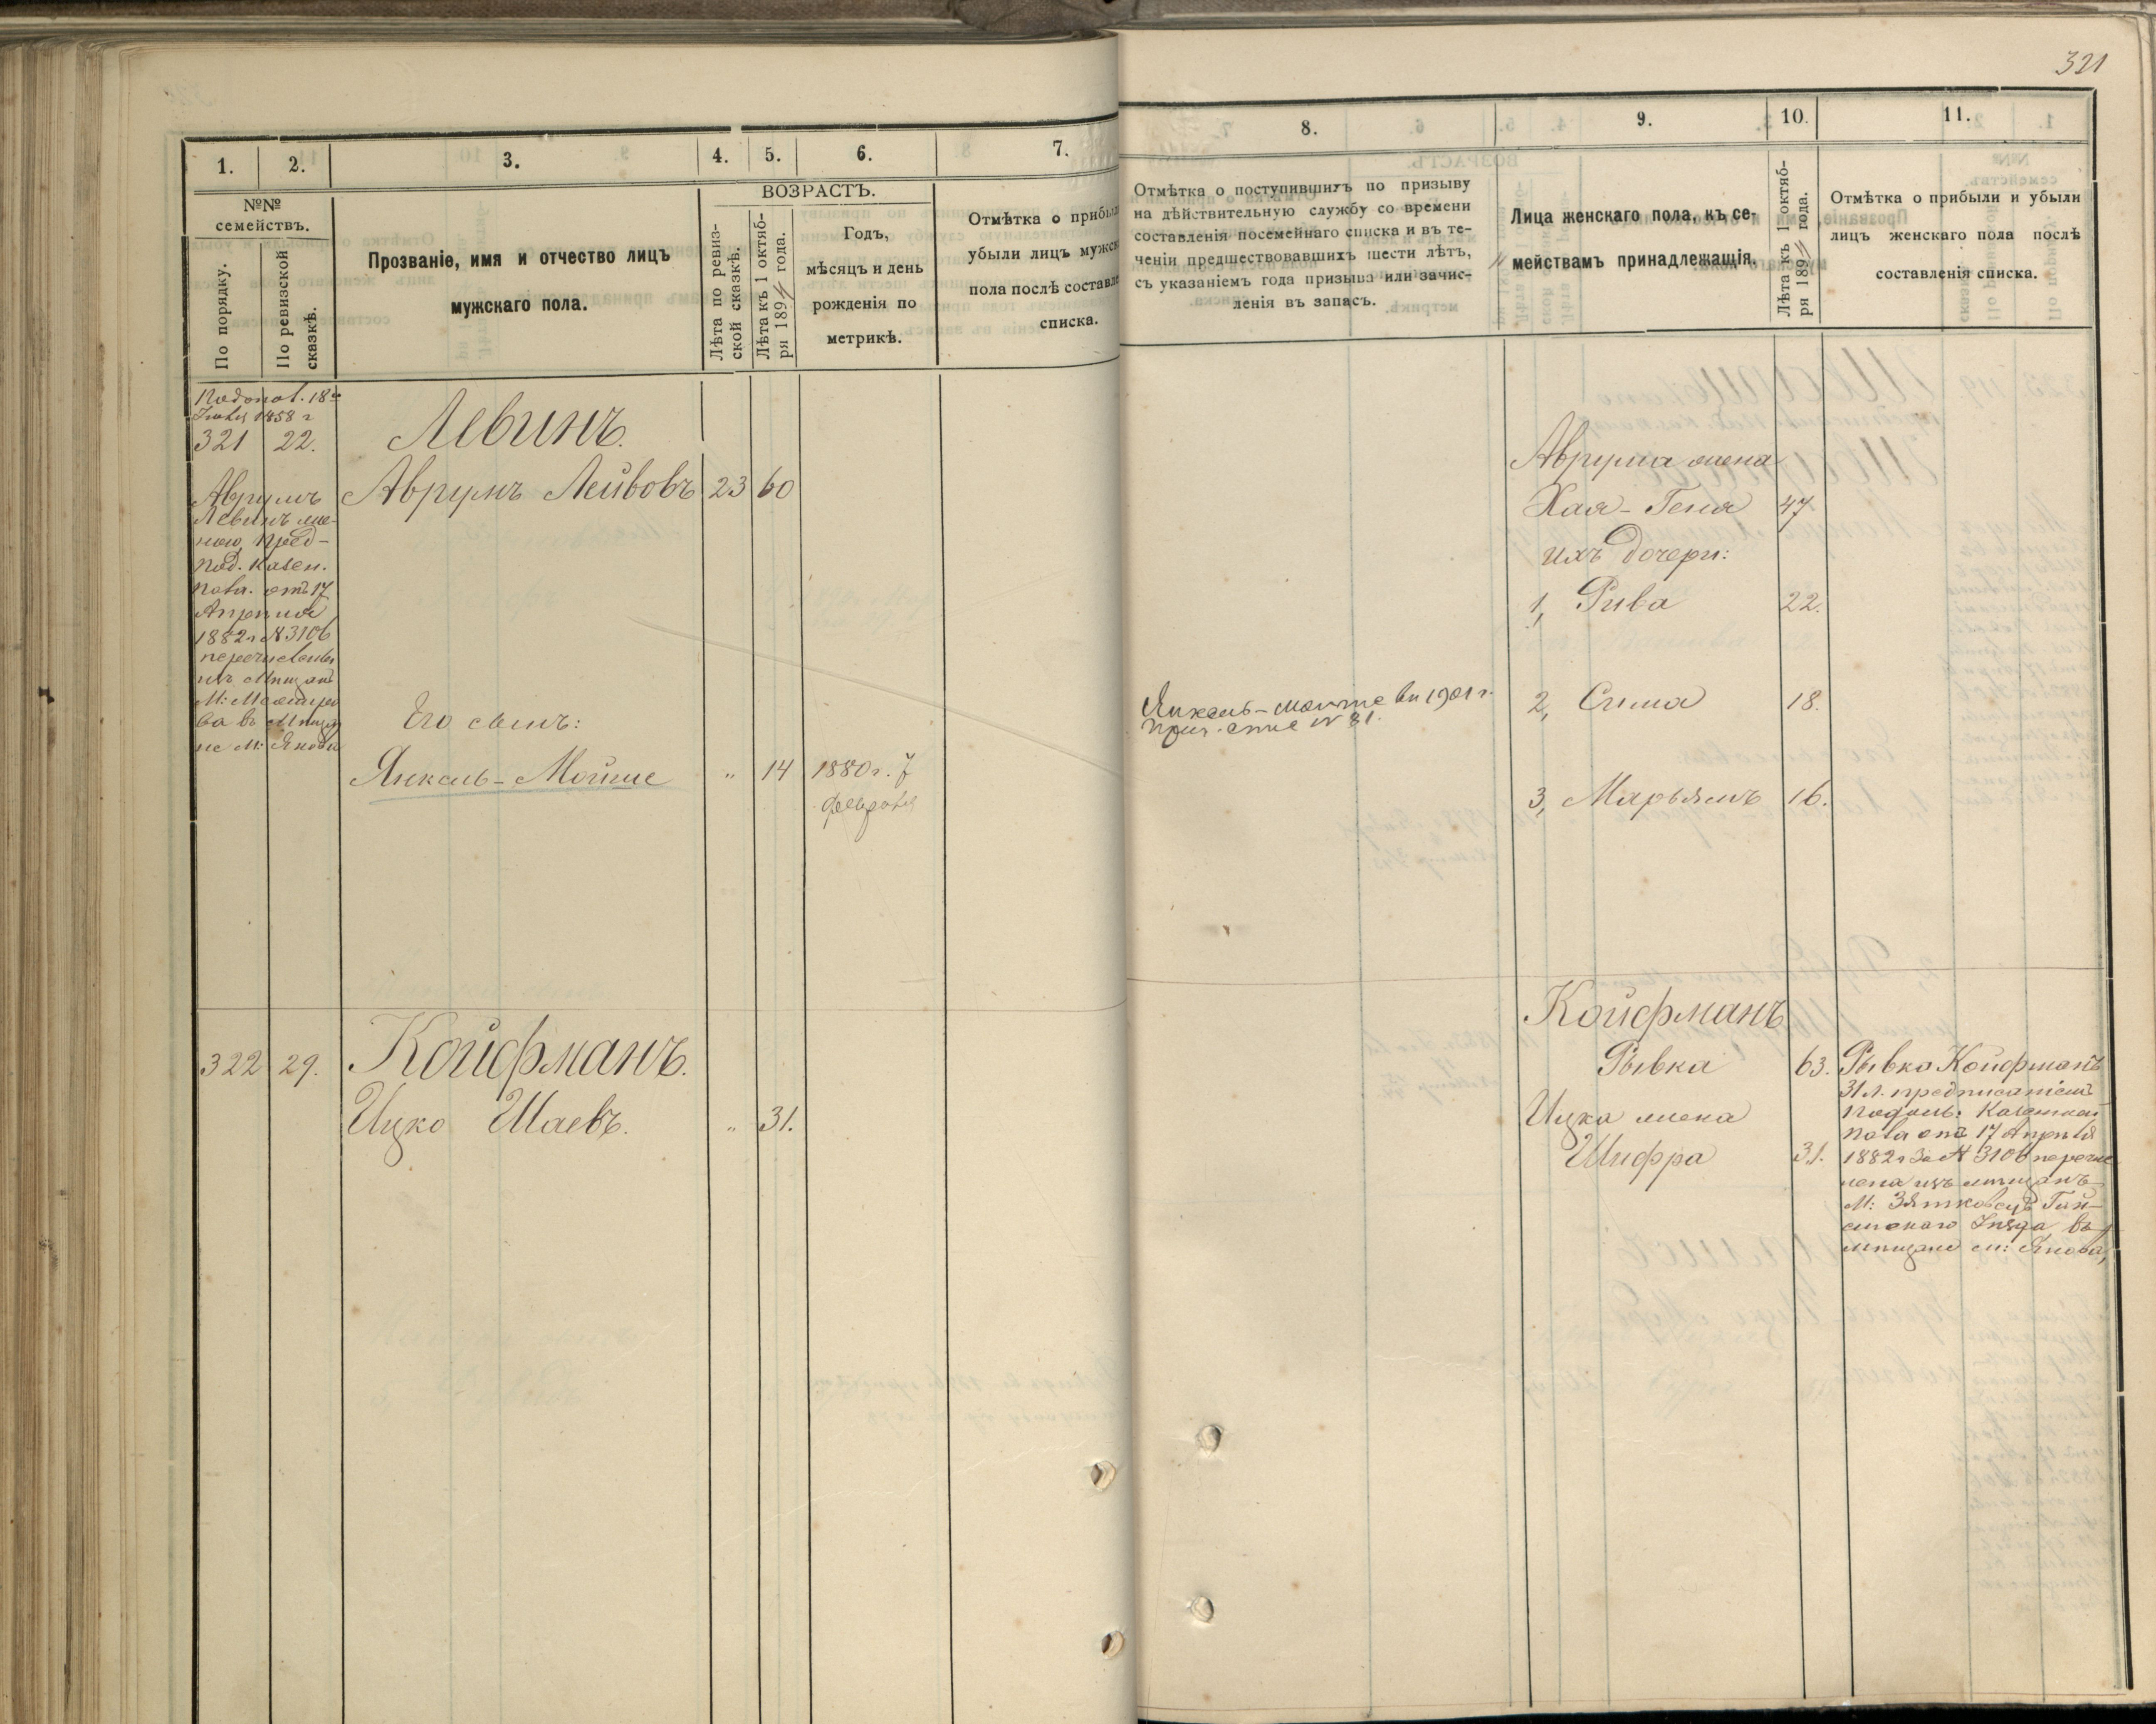 321
1.
2.
3.
4.
5.
6.
7.
№№ семействъ.
По порядку.
По ревизской сказкѣ.
Прозваніе, имя и отчество лицъ
мужскаго пола.
ВОЗРАСТЪ.
Лѣта по ревиз-
ской сказкѣ.
Лѣта къ 1 октяб-
ря 1894 года.
Годъ,
мѣсяцъ и день
рожденія по
метрикѣ.
Отмѣтка о прибыл
убыли лицъ мужск
пола послѣ составле
списка.
1858 г
321 22.
Левинъ.
Аврумъ Лейвовъ 23 60
Аврумъ
Левинъ
пред-
Под. казен.
отъ 17
Апрѣля
1882 г № 3106
перечисленъ
изъ Мѣщанъ
въ Мѣща
не М: Янова
Его сынъ:
Янкель-Мойше " 14 1880 г. 7
февраля
322 29.
Койфманъ.
Ицко Шаевъ. " 31.
8.
9.
10.
11.
Отмѣтка о поступившихъ по призыву
на дѣйствительную службу со времени
составленія посемейнаго списка и въ те-
ченіи предшествовавшихъ шести лѣтъ,
съ указаніемъ года призыва или зачис-
ленія въ запасъ.
Лица женскаго пола, къ се-
мействамъ принадлежащія.
Лѣта къ 1 октяб-
ря 1894 года.
Отмѣтка о прибыли и убыли
лицъ женскаго пола послѣ
составленія списка.
Аврума жена
Хая-Геня 47
ихъ дочери:
1, Рива 22.
Янкель-Мойше въ 1901 г.
№ 81.
2, Сима 18.
3, Марьямъ 16.
Койфманъ
Рывка 63.
Ицка жена
Шифра 31.
Рывка Койфманъ
31 л. предписаніемъ
Подоль: Казенной
отъ 17 Апрѣля
1882 г за № 3106 перечис
лена изъ мѣщанъ
М: Зятковецъ Гай-
синскаго Уѣзда въ
мѣщане м: Янова,